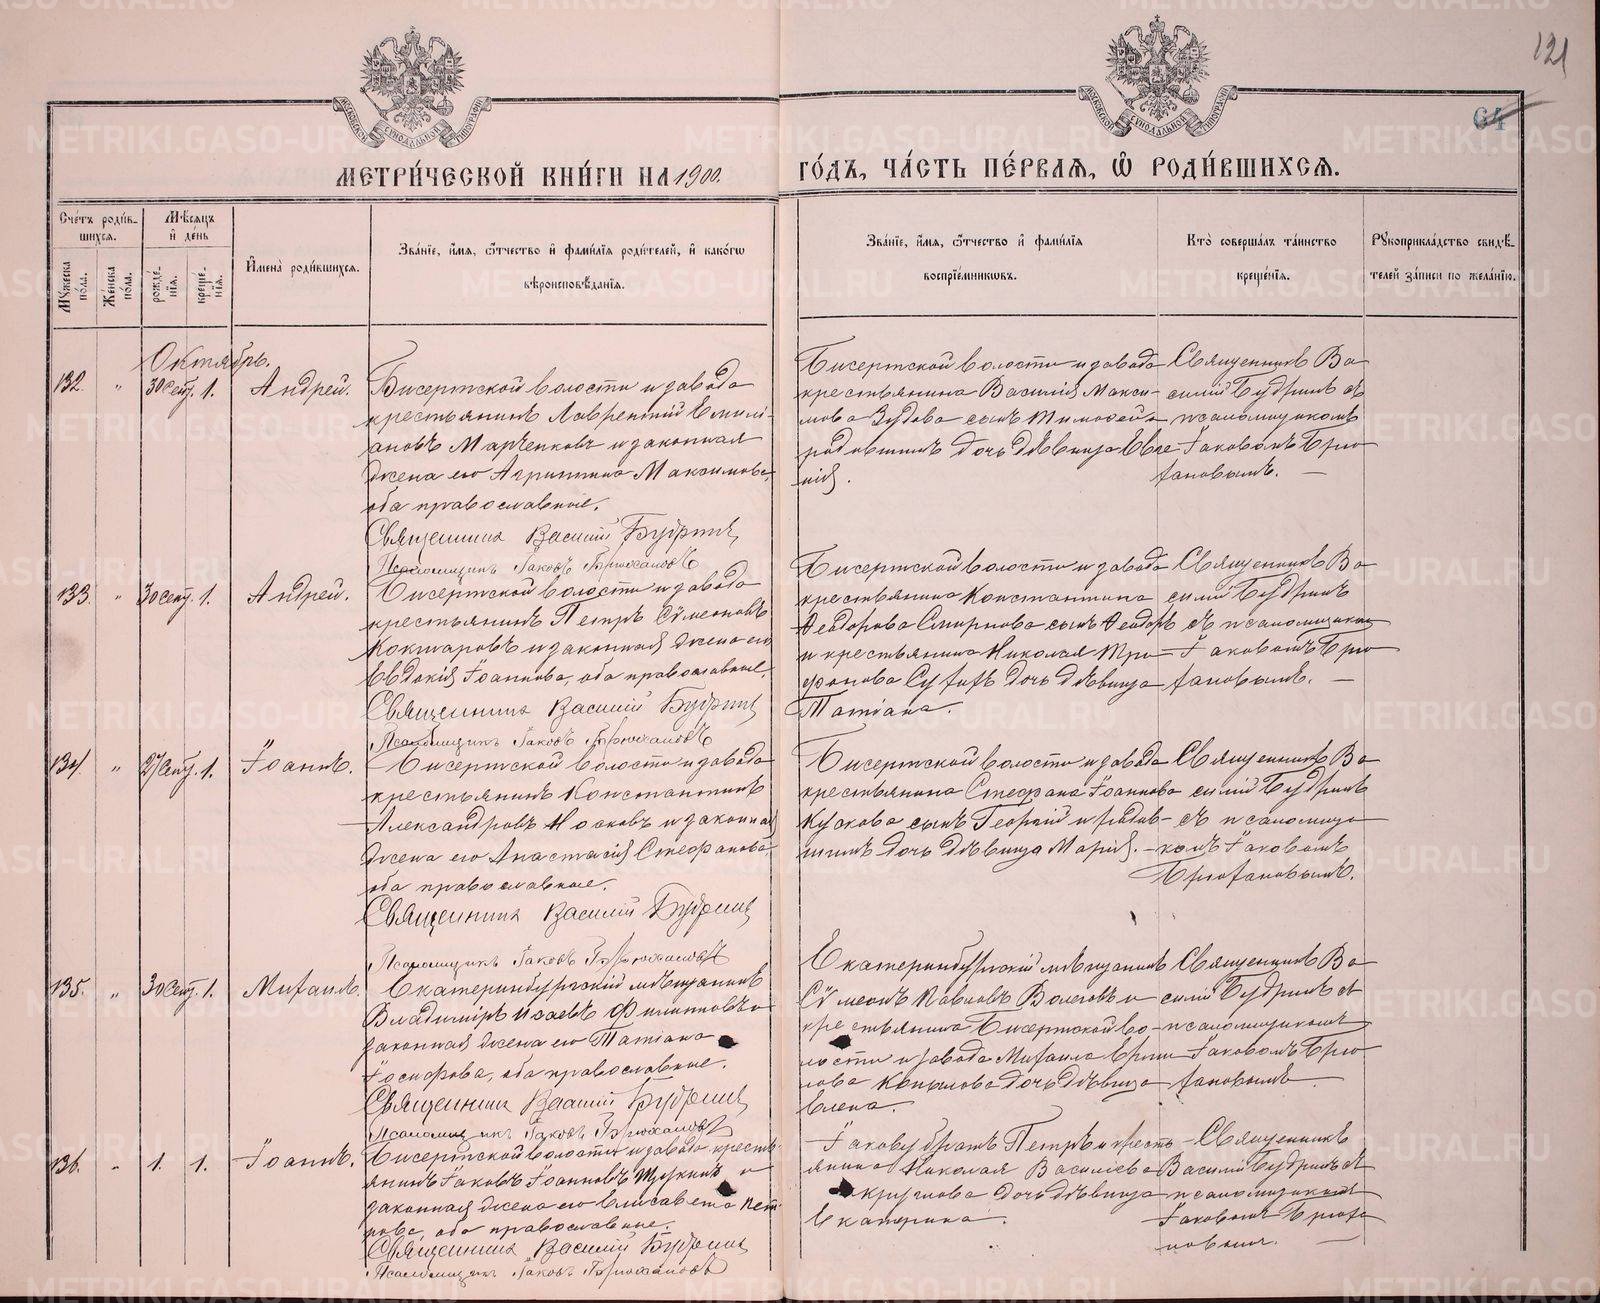 121
64
МЕТРИ́ЧЕСКОЙ КНИ́ГИ НА 1900.
ГО́ДЪ, ЧА́СТЬ ПЕ́РВАЯ, Ѽ РОДИ́ВШИХСЯ.
Сче́тъ роди́в-
шихся.
Мѣ́сяцъ
и҆ де́нь
Му́жеска по́ла.
Же́нска по́ла.
рожде́-нїя.
креще́-нїя.
И҆мена̀ роди́вшихся.
Зва́нїе, и҆́мя, ѻ҆́тчество и҆ фами́лїя роди́телей, и҆ како́гѡ
вѣроисповѣ́данїя.
Зва́нїе, и҆́мя, ѻ҆́тчество и҆ фами́лїя
воспрїе́мникѡвъ.
Кто̀ соверша́лъ та́инство
креще́нїя.
Рꙋкоприкла́дство свидѣ́-
телей за́писи по жела́нїю.
Октябрь.
132. " 30 Сент. 1. Андрей.
Бисертской волости и завода
крестьянинъ Лаврентій Емилі-
ановъ Марченковъ и законная
жена его Агриппина Максимова,
оба православные.
Священникъ Василій Будринъ
Псаломщикъ Іаковъ Брюхановъ
Бисертской волости и завода
крестьянина Василія Макси-
мова Зудова сынъ Тимоѳей и
родившимъ дочь дѣвица Евге-
нія.
Священникъ Ва-
силій Будринъ съ
псаломщикомъ
Іаковомъ Брю-
хановымъ. —
133. " 30 Сент. 1. Андрей.
Бисертской волости и завода
крестьянинъ Петръ Сѵмеоновъ
Кокшаровъ и законная жена его
Евдокія Іоаннова, оба православные.
Священникъ Василій Будринъ
Псаломщикъ Іаковъ Брюхановъ
Бисертской волости и завода
крестьянина Константина
Ѳеодорова Смирнова сынъ Ѳеодоръ
и крестьянина Николая Три-
фонова дочь дѣвица
Татіана.
Священникъ Ва-
силій Будринъ
съ псаломщикомъ
Іаковомъ Брю-
хановымъ. —
134. " 27 Сент. 1. Іоаннъ.
Бисертской волости и завода
крестьянинъ Константинъ
Александровъ Носковъ и законная
жена его Анастасія Стефанова,
оба православные.
Священникъ Василій Будринъ
Псаломщикъ Іаковъ Брюхановъ
Бисертской волости и завода
крестьянина Стефана Іоаннова
Кускова сынъ Георгій и родив-
шимъ дочь дѣвица Марія. —
Священникъ Ва-
силій Будринъ
съ псаломщи-
комъ Іаковомъ
Брюхановымъ.
135. " 30 Сент. 1. Михаилъ.
Екатеринбургскій мѣщанинъ
Владиміръ Исаевъ Филипповъ и
законная жена его Татіана
Іосифова, оба православные.
Священникъ Василій Будринъ
Псаломщикъ Іаковъ Брюхановъ
Екатеринбургскій мѣщанинъ
Сѵмеонъ Павловъ Волеговъ и
крестьянина Бисертской во-
лости и завода Михаила
Копылова дочь дѣвица
Елена.
Священникъ Ва-
силій Будринъ съ
псаломщикомъ
Іаковомъ Брю-
хановымъ —
136. " 1. 1. Іоаннъ.
Бисертской волости и завода кресть-
янинъ Іаковъ Іоанновъ Щукинъ и
законная жена его Елисавета Пет-
рова, оба православные.
Священникъ Василій Будринъ
Псаломщикъ Іаковъ Брюхановъ
Іакову братъ Петръ и кресть-
янина Николая Василіева
Круглова дочь дѣвица
Екатерина.
Священникъ
Василій Будринъ съ
псаломщикомъ
Іаковомъ Брюха-
новымъ. —